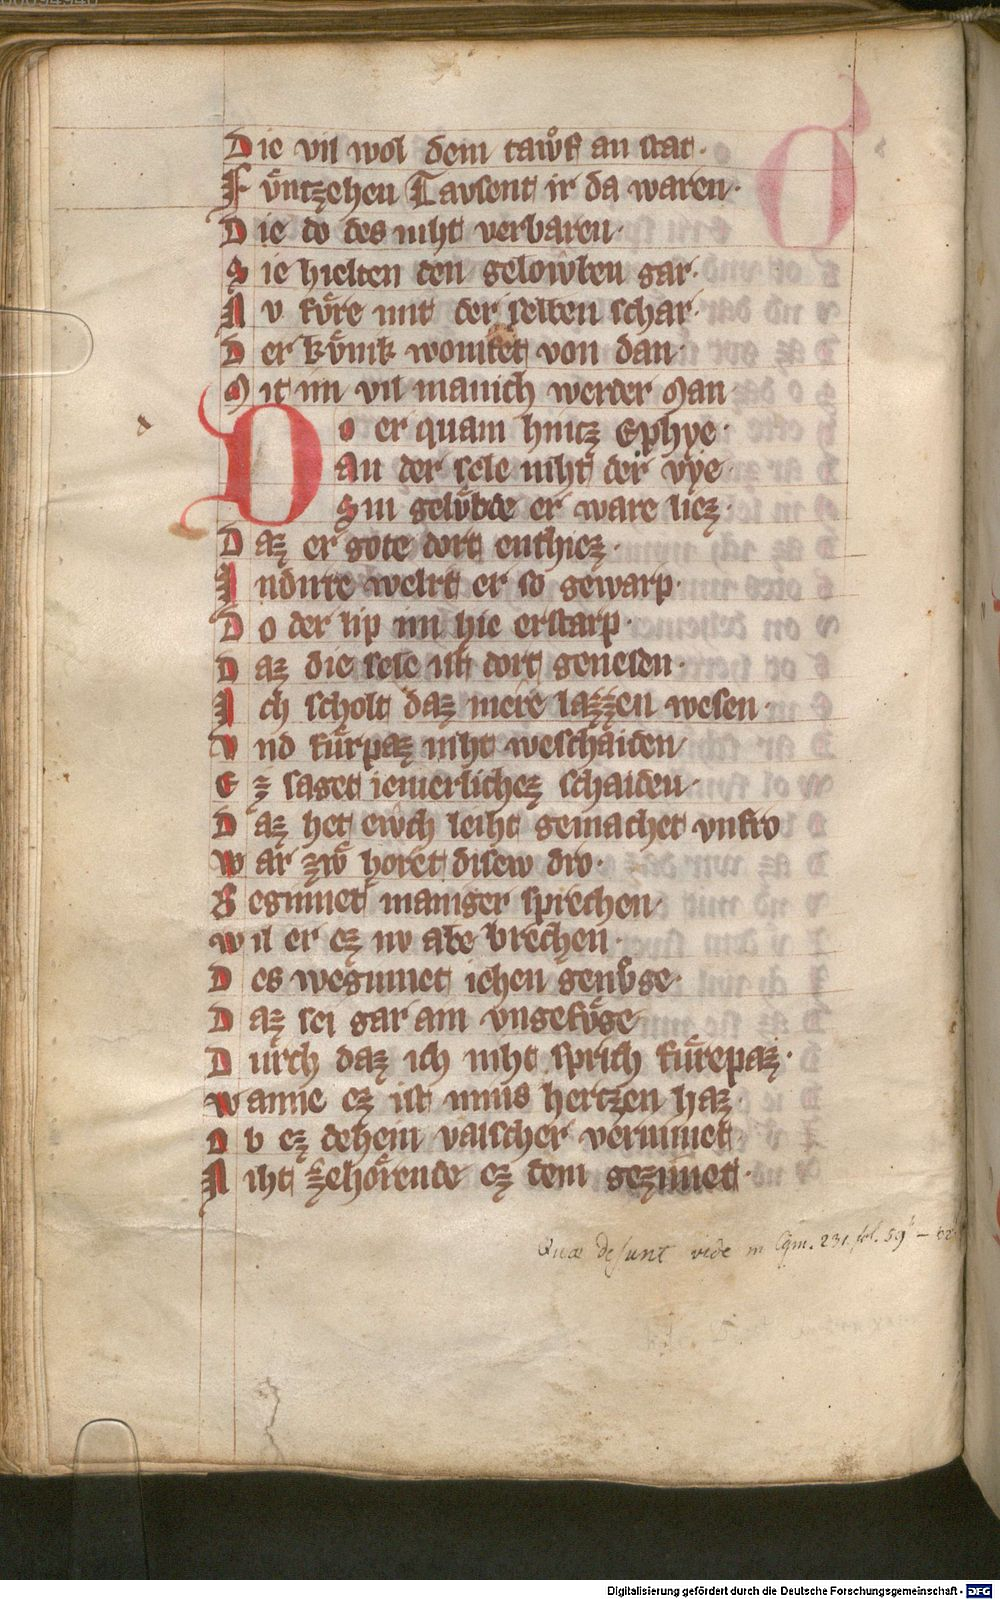 Die vil wol dem tawͦf an stat·
Fvͤntzehen Tavsent ir da waren·
Die do des niht verbaren·
Sie hielten den gelowͤben gar·
Nv fvͤre mit der selben schar·
Der kvͤnik womiket von dan·
Mit im vil manich werder man
Do er quam hintz Ephye·
an der sele niht der vye·
Sin gelvͤbde er ware liez·
Daz er gote dort enthiez·
In dirre welrt er so gewarp·
Do der lip im hie erstarp·
Daz die sele ist dort genesen·
Ich scholt daz mere lazzen wesen·
Vnd fuͤrpaz niht weschaiden
Ez saget iemerlichez schaiden·
Daz het ewch leiht gemachet vnfro
War zwͦ horet disew dro·
Beginnet maniger sprechen
Wil er ez nv abe brechen·
Des weginnet iehen genvͦge·
Daz sei gar ain vngefvͤge
Durch daz ich niht sprich fuͤrepaz·
Wanne ez ist mins hertzen haz·
Ob ez dehein valscher vernimet
Niht zehoͤrende ez dem gezimet·
Quae desunt vide in Cgm. 231. fol. 59
Digitalisierung gefördert durch die Deutsche Forschungsgemeinschaft - DFG